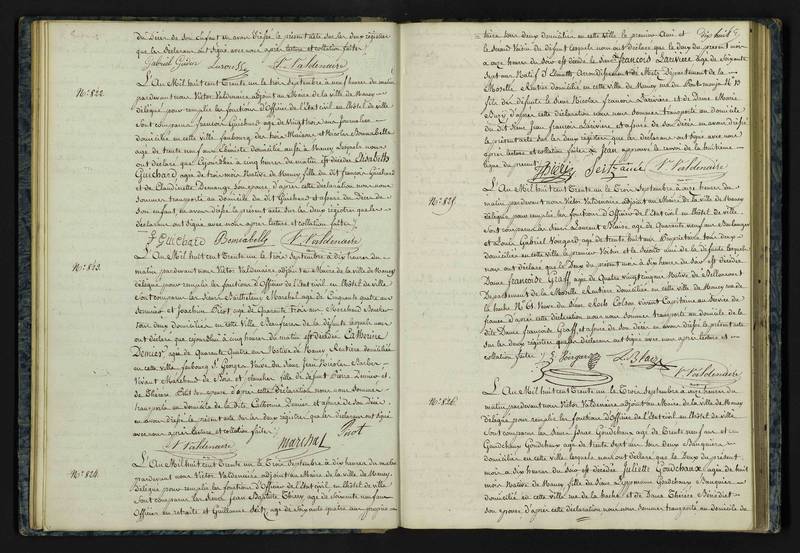 du Décès de son Enfant en avons Dressé le présent acte sur les deux régistres
que les déclarans ont Signé avec nous après lecture et collation faite /.
Gabriel Gidon Larousse Vr Valdenaire
N.º 822.
L'An Mil huit cent Trente un le trois Septembre à neuf heures du matin
pardevant nous Victor Valdenaire adjoint au Maire de la ville de Nancy
délégué pour remplir les fonctions d'Officier de l'état civil en l'hôtel de ville
Sont comparus François Guichard age de Vingt trois ans Journalier
domicilié en cette ville faubourg des trois Maisons et Nicolas Bonnabelle
age de trente neuf ans Ebéniste domicilié aussi à Nancy Lesquels nous
ont déclaré que Cejourd'hui à cinq heures du matin est décédée Elisabeth
Guichard, agée de trois mois Native de Nancy fille du dit François Guichard
et de Claudinette Demange Son épouse, d'après cette déclaration nous nous
sommes transporté au domicile du dit Guichard et assuré du Décès de
son enfant, en avons dressé le présent acte sur les deux registres que les
déclarans ont signé avec nous après lecture et collation faite /.
F Guichard Bonnabelle Vr Valdenaire
N.º 823.
L'An Mil huit cent Trente un le trois Septembre à dix heures du
matin pardevant nous Victor Valdenaire adjoint au Maire de la ville de Nancy
délégué pour remplir les fonctions d'Officier de l'état civil en l'hôtel de ville
Sont comparus les Sieurs Barthelemy Marchal age de Cinquante quatre ans
et Joachim Pirot age de Quarante Trois ans Marchand
tous deux domiciliés en cette ville de la défunte lesquels nous
ont déclaré que cejourd'hui à cinq heures du matin est décédée Catherine
Denier, age de Quarante Quatre ans Native de Nancy Rentière domiciliée
en cette ville, faubourg St Georges Veuve du Sieur Jean Nicolas
Vivant Marchand de Bois et fille de défunt Pierre Denier et
de Thérèse d'après cette déclaration nous nous sommes
transporté au domicile de la dite Catherine Denier et assuré de son Décès
en avons dressé le présent acte sur les deux registres que les déclarans ont signé
avec nous après lecture et collation faite /.
Vr Valdenaire Marchal Pirot
N.º 824.
L'An Mil huit cent Trente un le Trois Septembre à dix heures du matin
pardevant nous Victor Valdenaire adjoint au Maire de la ville de Nancy
délégué pour remplir les fonctions d'Officier de l'état civil en l'hôtel de ville
Sont comparus les Sieurs Jean Baptiste Thiery age de Soixante un ans
Officier en retraite et Guillaume age de soixante quatre ans
tous deux domiciliés en cette ville le premier Ami et
le second Voisin du défunt lesquels nous ont déclaré que le deux du présent mois
à onze heures du Soir est décédé le Sieur François Larivière age de Soixante
Sept ans Natif Arrondissement de Metz Département de la
Moselle Rentier domicilié en cette ville de Nancy rue du Pont-mouja N.º 10
fils des défunts le Sieur Nicolas François Larivière et de Dame Marie
Bury, d'après cette déclaration nous nous sommes transporté au domicile
du dit Sieur Jean François Larivière et assuré de son décès en avons dressé
le présent acte sur les deux registres que les déclarans ont signé avec nous
après lecture et collation faite & Jean approuvé le renvoi de la huitième
ligne du présent
Vr Valdenaire
N.º 825.
L'An Mil huit cent Trente un le Trois Septembre à onze heures du
matin, pardevant nous Victor Valdenaire adjoint au Maire de la ville de Nancy
délégué pour remplir les fonctions d'Officier de l'état civil en l'hôtel de ville
Sont comparus les Sieurs Laurent Blaise age de Quarante neuf ans Boulanger
et Louis Gabriel age de trente huit ans Propriétaire tous deux
domiciliés en cette ville le premier Voisin et le second ami de la défunte lesquels
nous ont déclaré que le Deux du présent mois à dix heures du Soir est décédée
Dame Françoise Graff agée de Quatre vingt cinq ans Native de
Département de la Moselle Rentière domiciliée en cette ville de Nancy rue de
la hache N.º 61 Veuve du Sieur Colson vivant Capitaine au Service de
france, d'après cette déclaration nous nous sommes transporté au domicile de la
dite Dame françoise Graff et assuré de son Décès en avons dressé le présent acte
sur les deux registres que les déclarans ont signé avec nous après lecture et
collation faite /.
L Blaise
Vr Valdenaire
N.º 826.
L'An Mil huit cent Trente un le Trois Septembre à onze heures du
matin, pardevant nous Victor Valdenaire adjoint au Maire de la ville de Nancy
délégué pour remplir les fonctions d'Officier de l'état civil en l'hôtel de ville
Sont comparus les Sieurs Isaac Goudchaux age de Trente neuf ans et
Goudchaux Goudchaux age de trente sept ans tous deux Banquiers
domiciliés en cette ville lesquels nous ont déclaré que le Deux du présent
mois à dix heures du Soir est décédée Juliette Goudchaux agée de huit
mois Native de Nancy fille du Sieur Goudchaux Banquier
domicilié en cette ville rue de la hache et de Dame Thérèse Bénédict
son épouse, d'après cette déclaration nous nous sommes transporté au domicile du